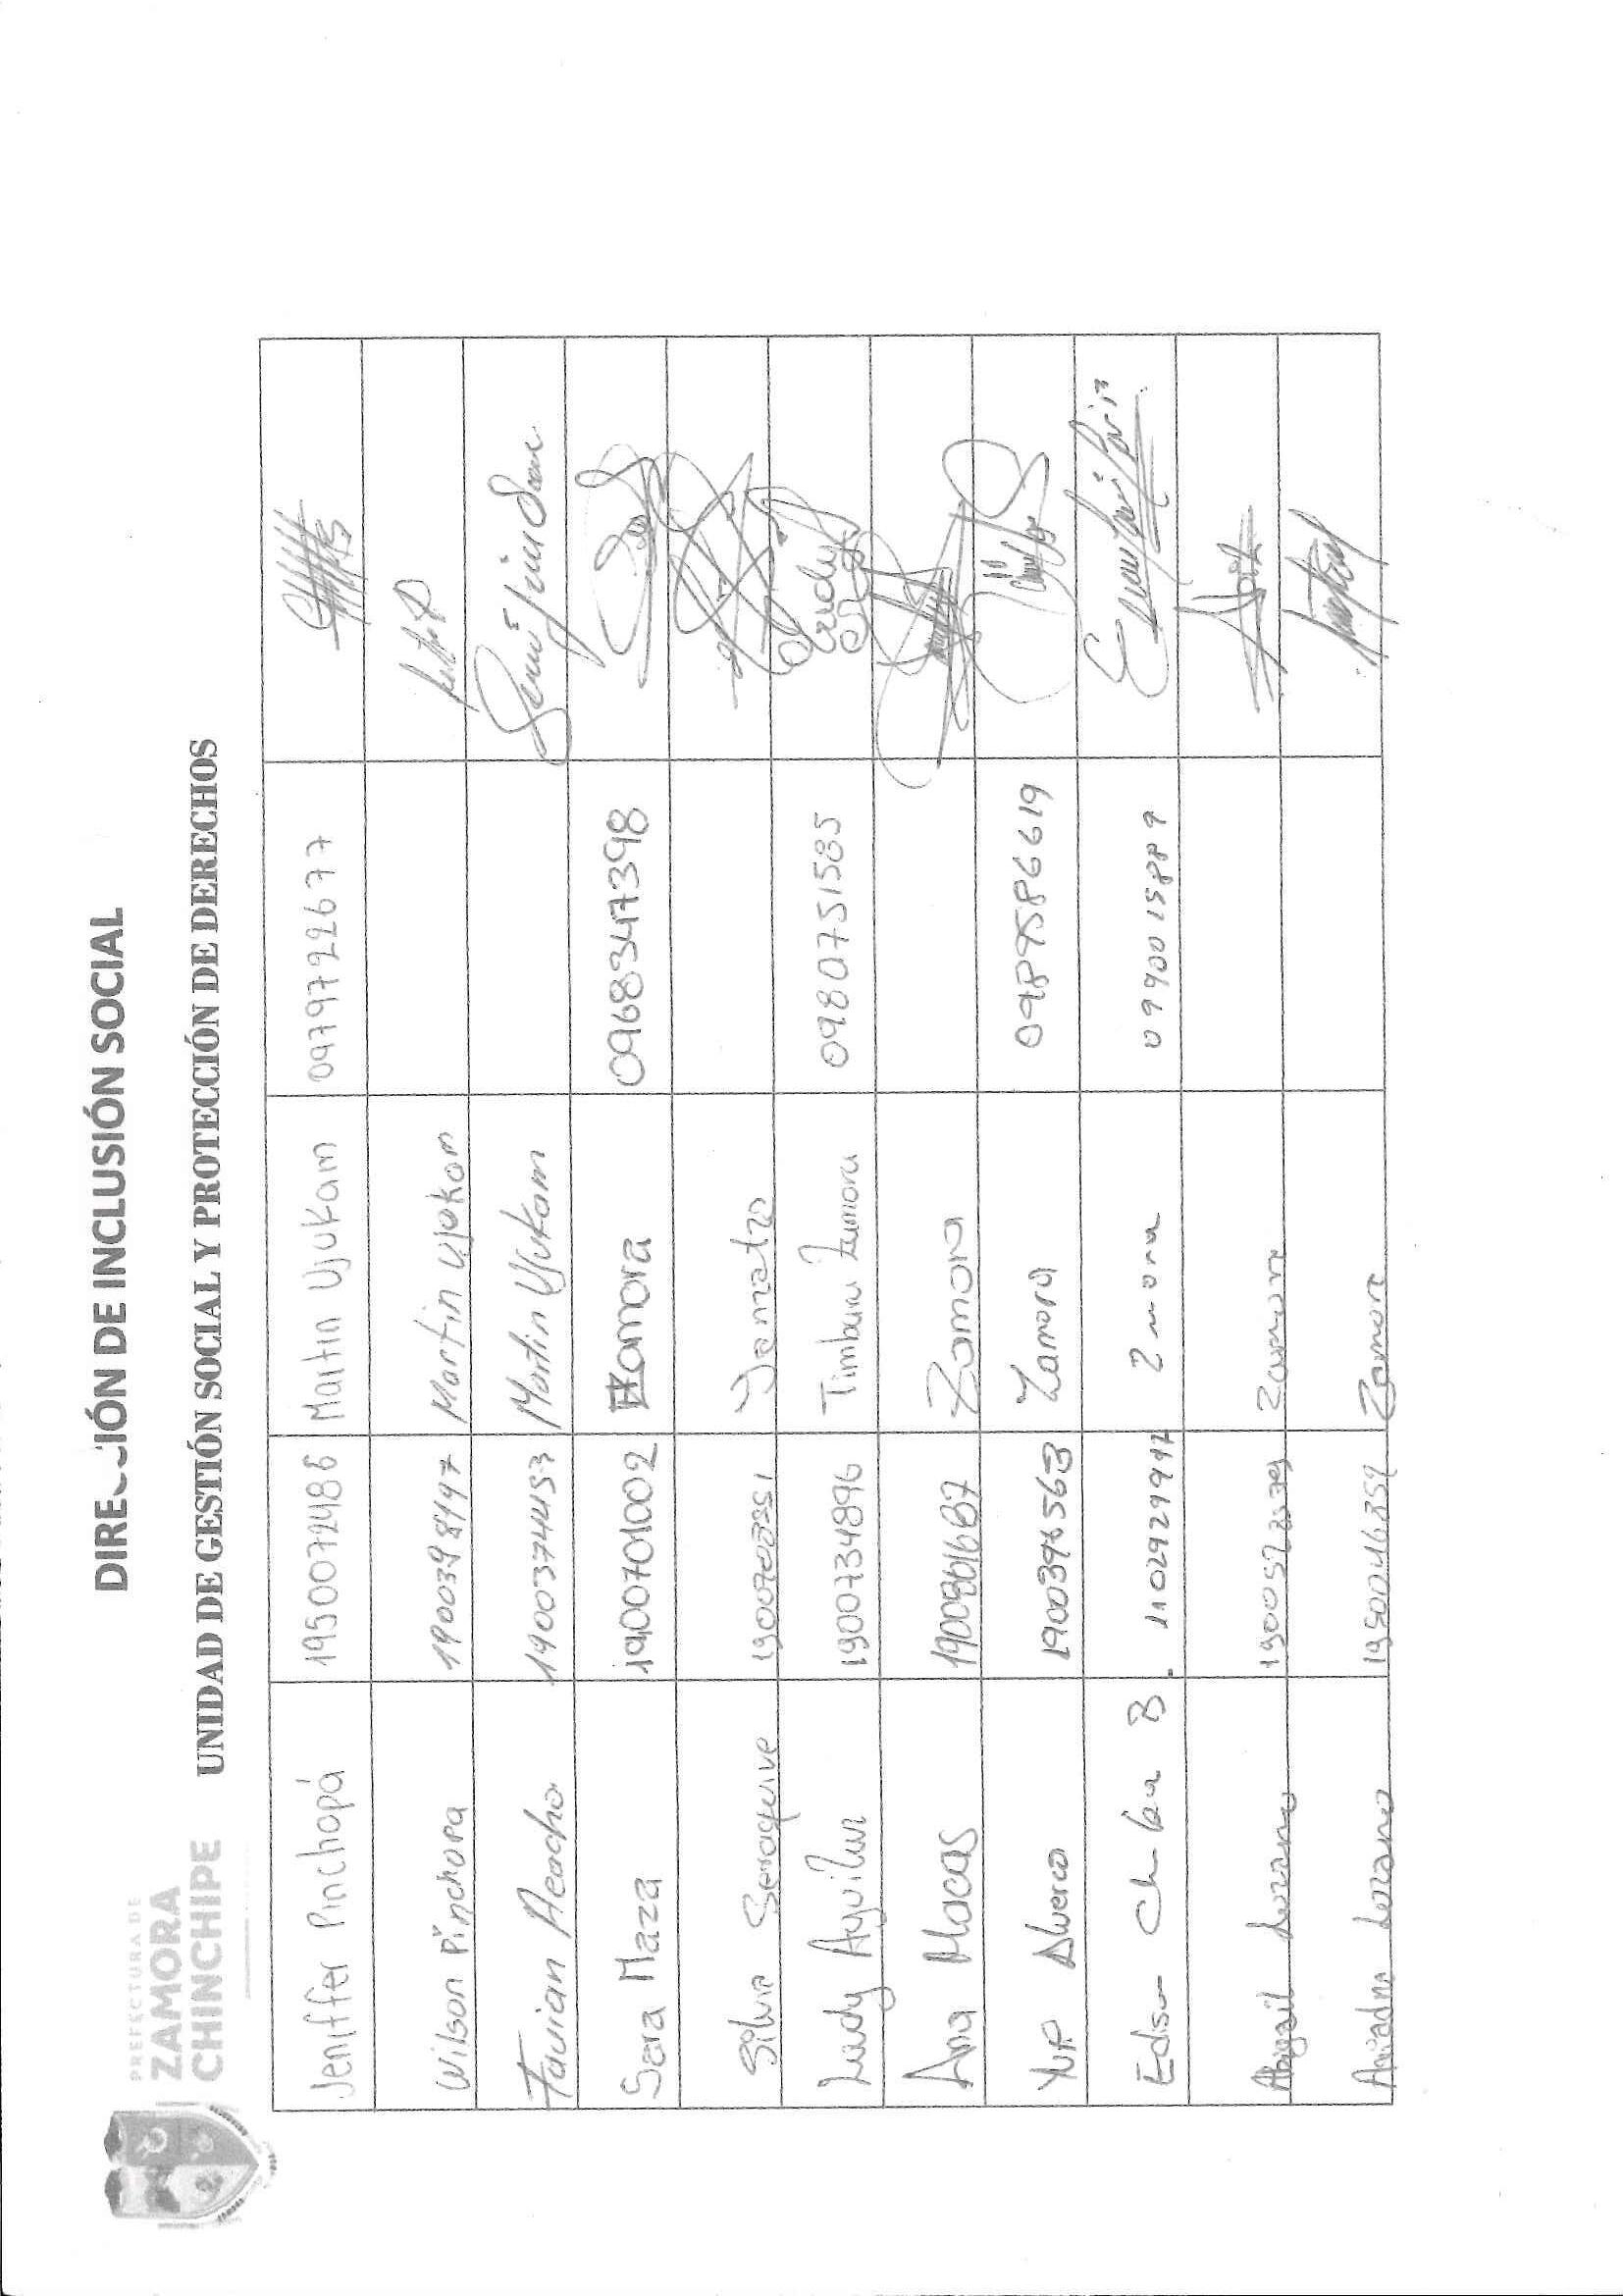 PREFECTURA DE
ZAMORA
CHINCHIPE
DIRECCIÓN DE INCLUSIÓN SOCIAL
UNIDAD DE GESTIÓN SOCIAL Y PROTECCIÓN DE DERECHOS
Jeniffer Pinchopá 1950072486 Martin Ujukam 0979722677
Wilson Pinchopa 1900398497 Martin Ujukam
Favian Aeacho 1900374453 Martin Ujukam
Sara Maza 1900701002 Zamora 0968347398
Silvia Saraguire Yamatza
Leidy Aguilar 1900734896 Timbara Zamora 0980751585
Ana Macas Zamora
Yuri Alverca 1900398563 Zamora 0989586619
Edison B 1102929917 Zamora 0990015889
Abigail Lozano Zamora
Ariadna Lozano 1950046359 Zamora